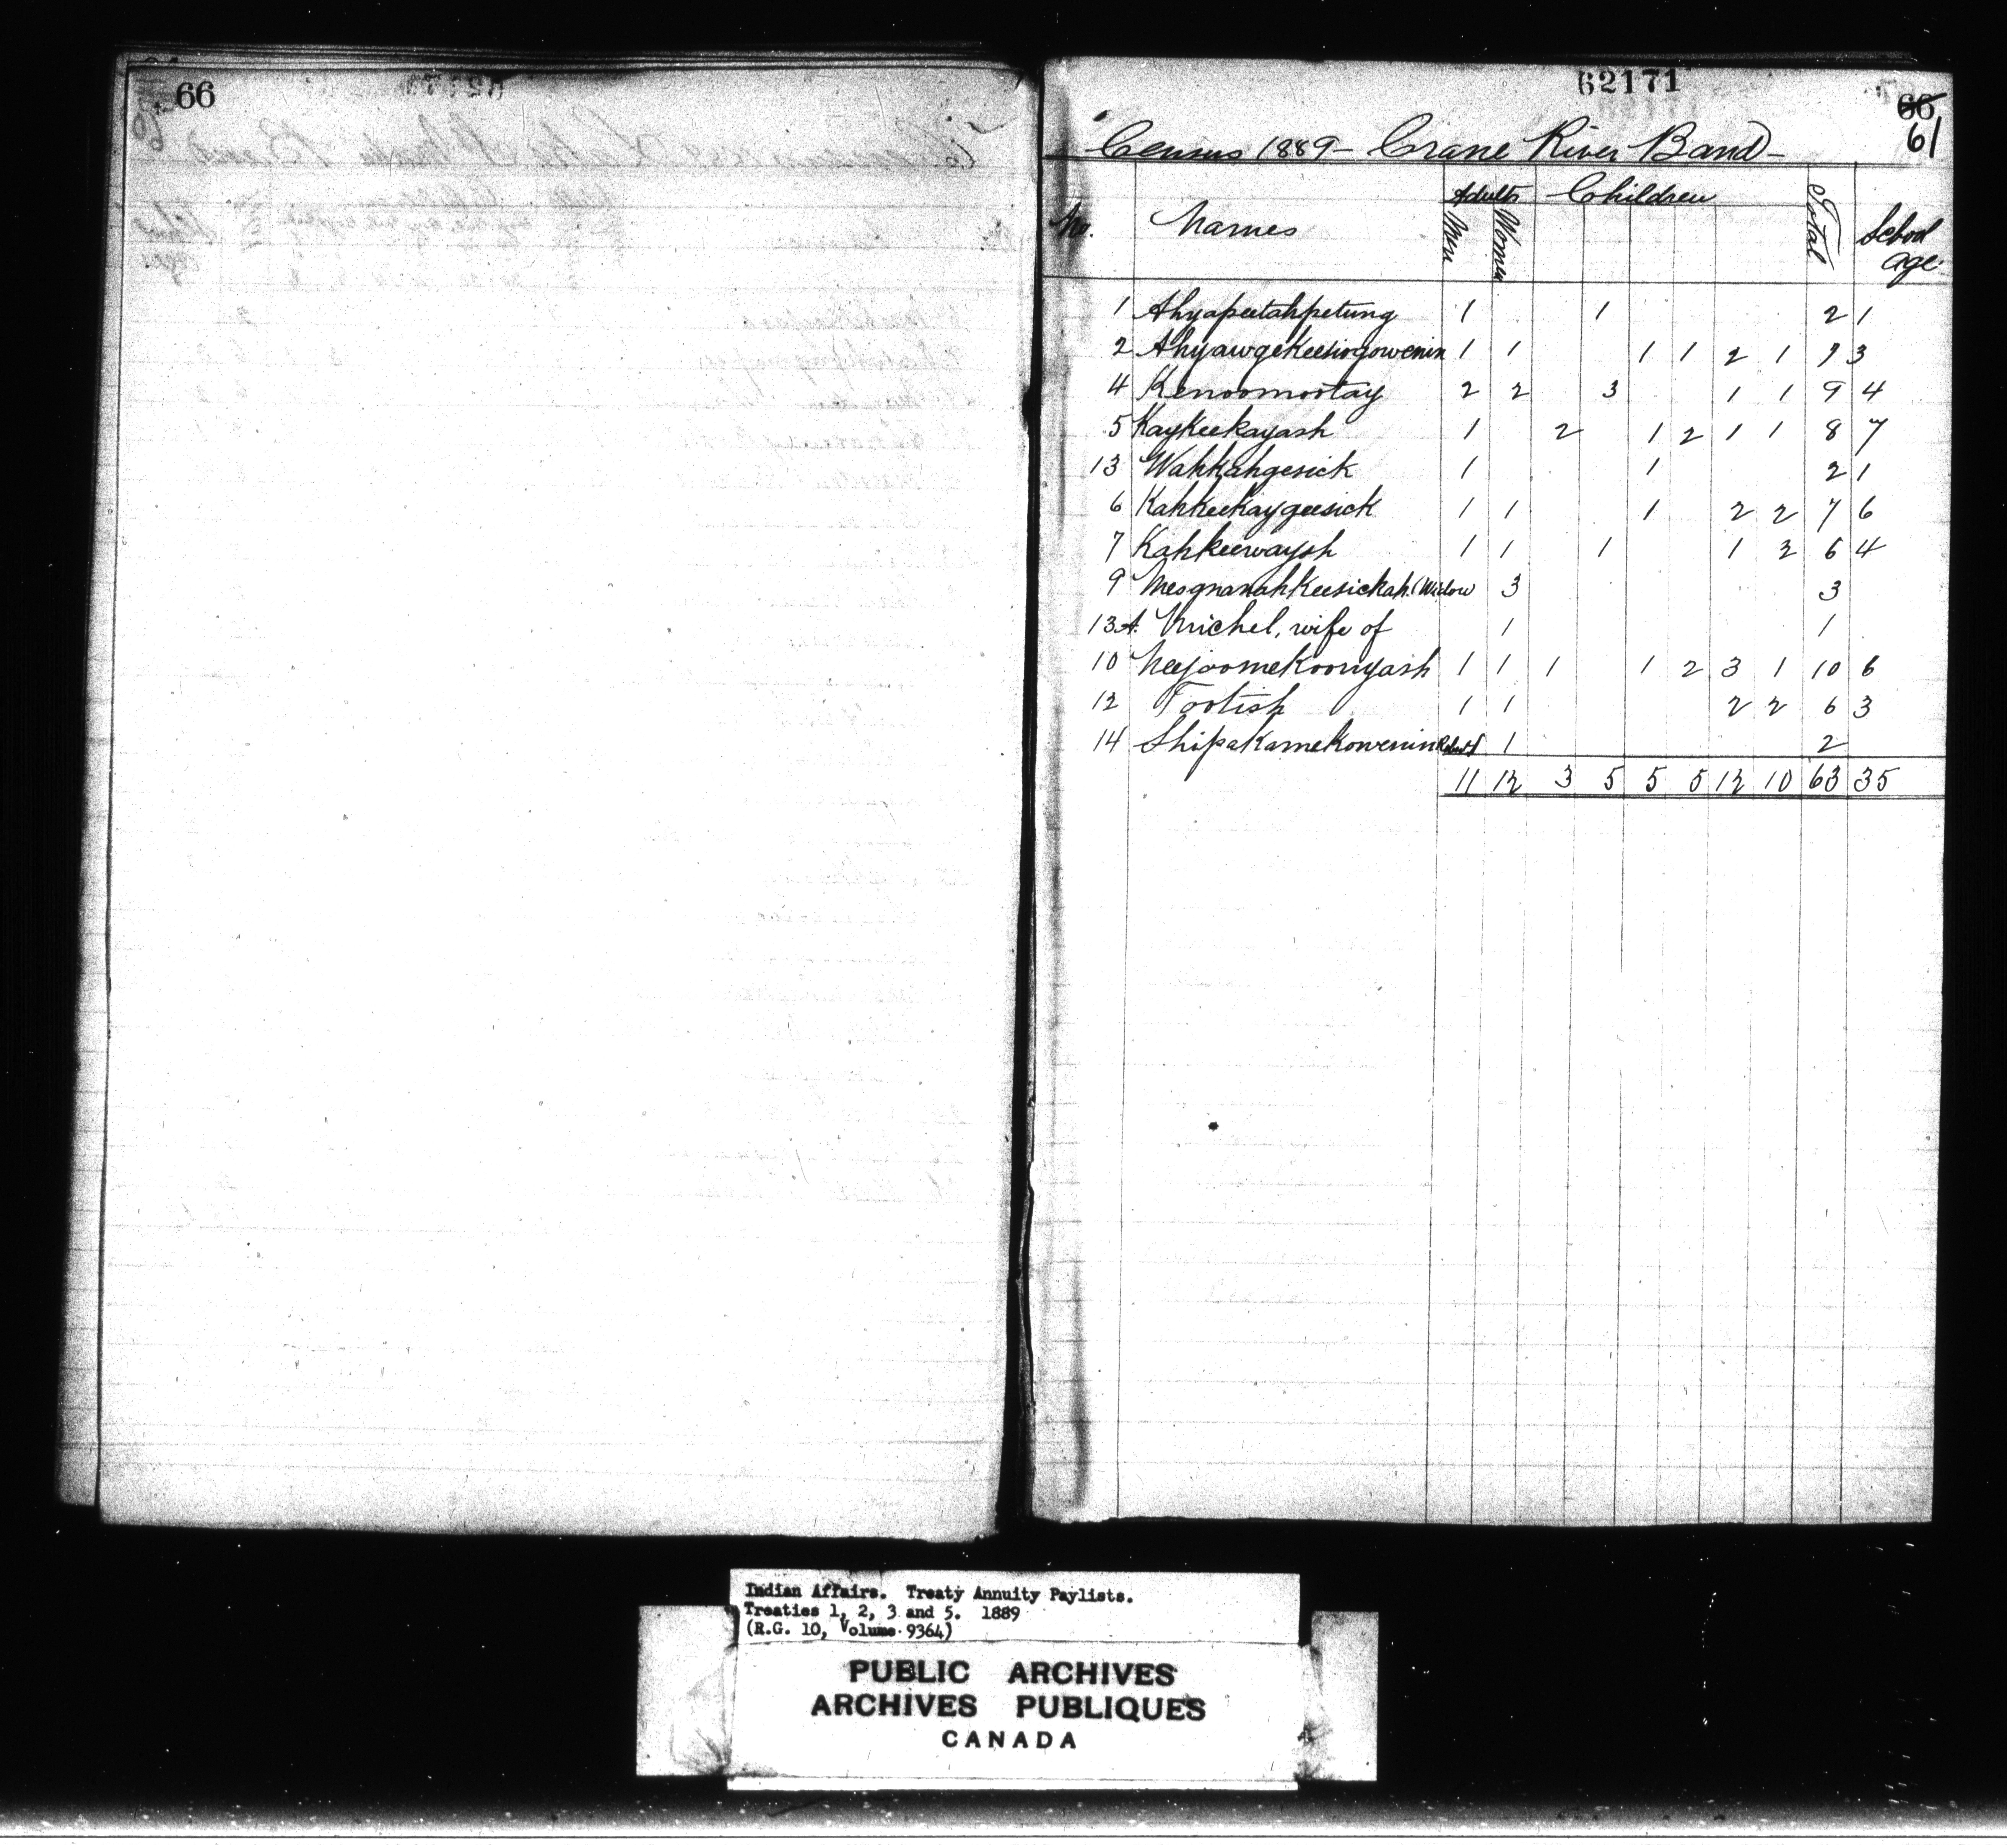 66
62171
66
61
Census 1889 - Crane River Band -
No. Names Adults Men Women Children Total School age
1 Ahyapeetahpetung 1 1 2 1
2 Ahyawgekeesiogowenin 1 1 1 1 2 1 7 3
4 Kenoomootay 2 2 3 1 1 9 4
5 Kaykeekayash 1 2 1 2 1 1 8 7
13 Wahkahgesick 1 1 2 1
6 Kahkeekaygeesick 1 1 1 2 2 7 6
7 Kahkeewaysh 1 1 1 1 2 6 4
9 Mesgnanahkeesickah (Widow 3 3
13A. Michel, wife of 1 1
10 Neejoomekoonyash 1 1 1 1 2 3 1 10 6
12 Tootish 1 1 2 2 6 3
14 Shipakamekowenin 1 2
11 12 3 5 5 5 12 10 63 35
Indian Affairs. Treaty Annuity Paylists.
Treaties 1, 2, 3 and 5. 1889
(R.G. 10, Volume 9364)
PUBLIC ARCHIVES
ARCHIVES PUBLIQUES
CANADA